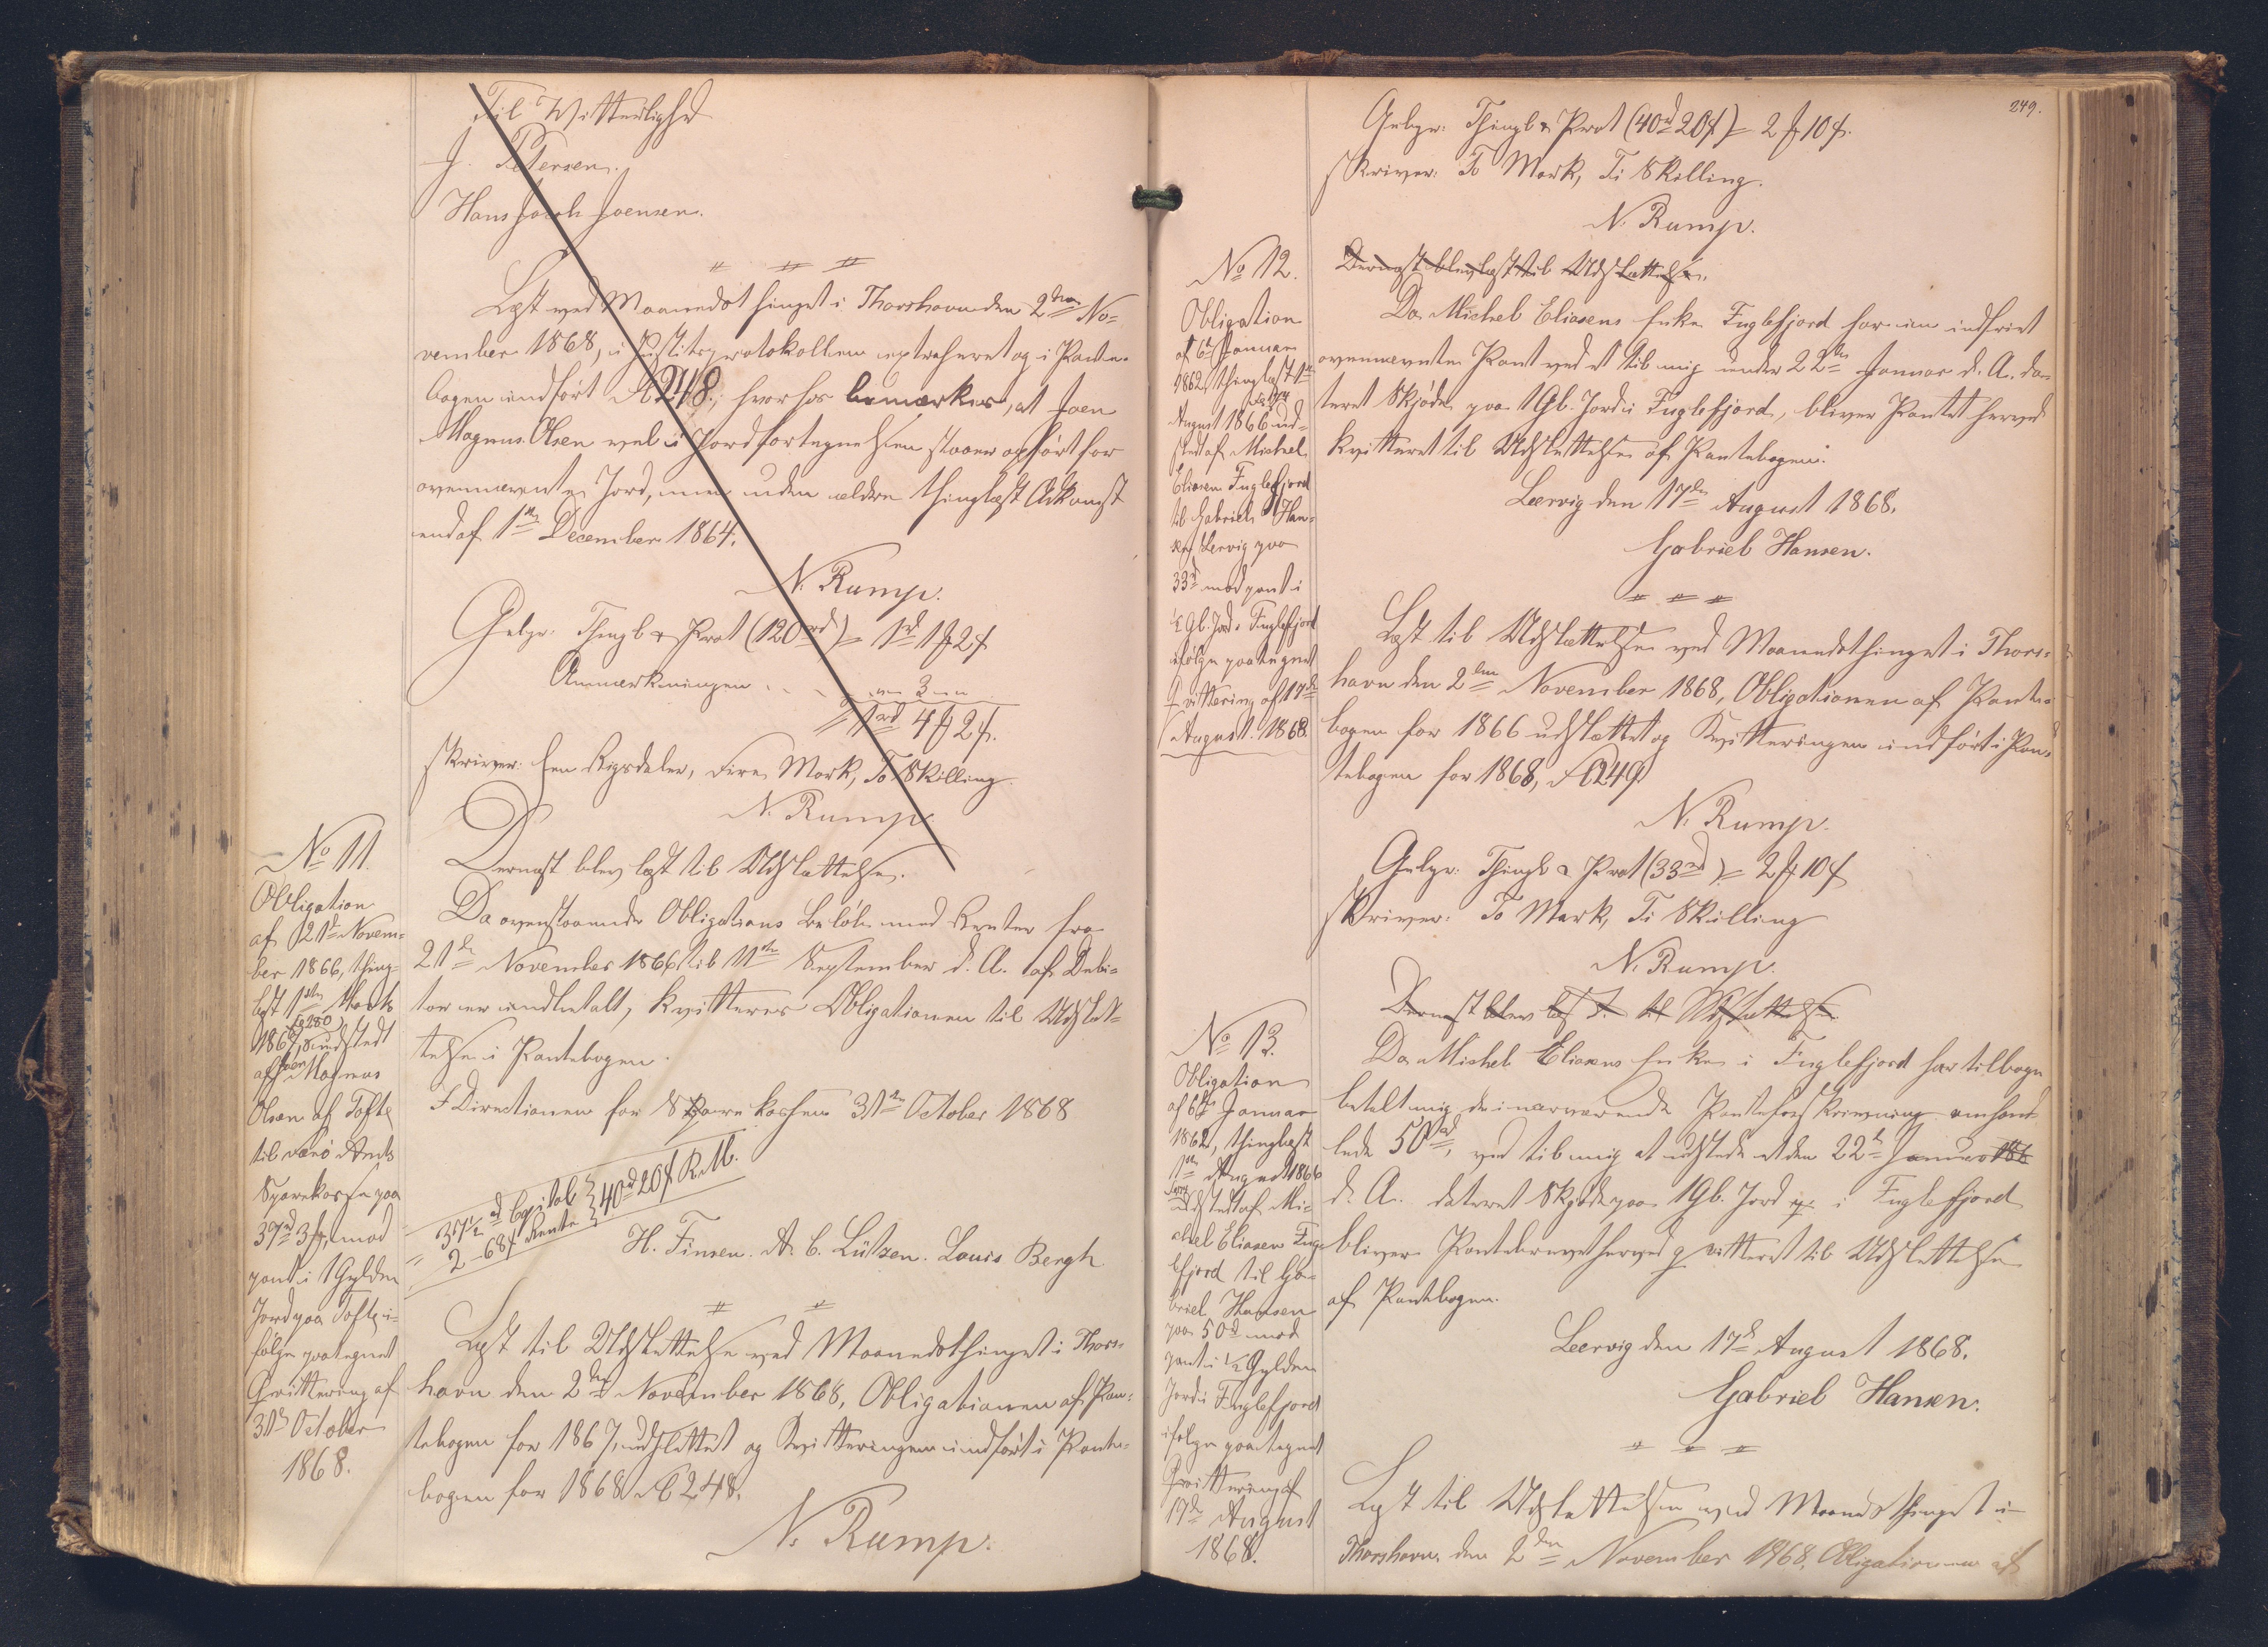 Til Witterlighed
J. Petersen.
Hans Jacob Joensen.
Læst ved Maanedsthinget i Thorshavn den 2den No-
vember 1868, i Justitsprotokollen extraheret og i Pante-
bogen indført Fol 248, hvorhos bemærkes, at Joen
Magnus Olsen vel i Jordfortegnelsen staaer opført for
ovennævnte Jord, men uden ældre thinglæst Adkomst
end af 1ste December 1864.
N. Rump.
Gebyr: Thingl & Prot (120rd) = 1rd 1 ₰ 2 s
Anmærkningen . . . " 3 "
1rd 4 ₰ 2 s.
skriver: Een Rigsdaler, Fire Mark, To Skilling.
N. Rump.
No 11.
Obligation
af 21de Novem-
ber 1866, thing-
læst 1ste Marts
1867 (Fol 280) udstedt
af Joen Magnus
Olsen af Tofte
til Færø Amts
Sparekasse paa
37rd 3 ₰, mod
pant i 1 Gylden
Jord paa Tofte i-
følge paategnet
Qvittering af
31te October
1868.
Dernæst blev læst til Udslettelse.
Da ovenstaaende Obligations Beløb med Renter fra
21de November 1866 til 11te September d. A. af Debi-
tor er indbetalt, kvitteres Obligationen til Udslet-
telse i Pantebogen.
I Directionen for Sparekassen 31te October 1868
37½ rd Capital } 40rd 20 s R.M.
2 - 68 s Rente
H. Finsen. A. C. Lützen. Louis Bergh
Læst til Udslettelse ved Maanedsthinget i Thors-
havn den 2den November 1868, Obligationen af Pan-
tebogen for 1867, udslettet og Kvitteringen indført i Pante-
bogen for 1868 Fol 248.
N. Rump.
249.
Gebyr: Thingl & Prot (40rd 20 s) = 2 ₰ 10 s.
skriver: To Mark, Ti Skilling.
N. Rump.
No 12.
Obligation
af 6te Januar
1862, thinglæst 1ste
August 1866 ud-
stedt af Michel
Eliasen Fuglefjord
til Gabriel Han-
sen Lervig paa
33rd mod pant i
½ Gl. Jord i Fuglefjord
ifølge paategnet
Qvittering af 17de
August 1868.
Dernæst blev læst til Udslettelse.
Da Michel Eliasens Enke Fuglefjord har nu indfriet
ovennævnte Pant ved et til mig under 22de Januar d. A. da-
teret Skjøde paa 1 Gl. Jord i Fuglefjord, bliver Pantet herved
kvitteret til Udslettelse af Pantebogen.
Leervig den 17de August 1868.
Gabriel Hansen.
Læst til Udslettelse ved Maanedsthinget i Thors-
havn den 2den November 1868, Obligationen af Pante-
bogen for 1866 udslettet og Kvitteringen indført i Pan-
tebogen for 1868, Fol 249
N. Rump.
Gebyr: Thingl & Prot (33rd) = 2 ₰ 10 s
skriver: To Mark, Ti Skilling
N. Rump.
No 13.
Obligation
af 6te Januar
1862, thinglæst
1ste August 1866
udstedt af Mi-
chel Eliasen Fug-
lefjord til Ga-
briel Hansen
paa 50rd mod
pant i ½ Gylden
Jord i Fuglefjord
ifølge paategnet
Qvittering af
17de August
1868.
Dernæst blev læst til Udslettelse.
Da Michel Eliasens Enke i Fuglefjord har tilbage
betalt mig de i nærværende Panteforskrivning omhand-
lede 50rd, ved til mig at udstede et den 22de Januar 186
d. A. dateret Skjøde paa 1 Gl. Jord i Fuglefjord
bliver Pantebrevet herved qvitteret til Udslettelse
af Pantebogen.
Leervig den 17de August 1868.
Gabriel Hansen.
Læst til Udslettelse ved Maanedsthinget i
Thorshavn, den 2den November 1868, Obligationen af